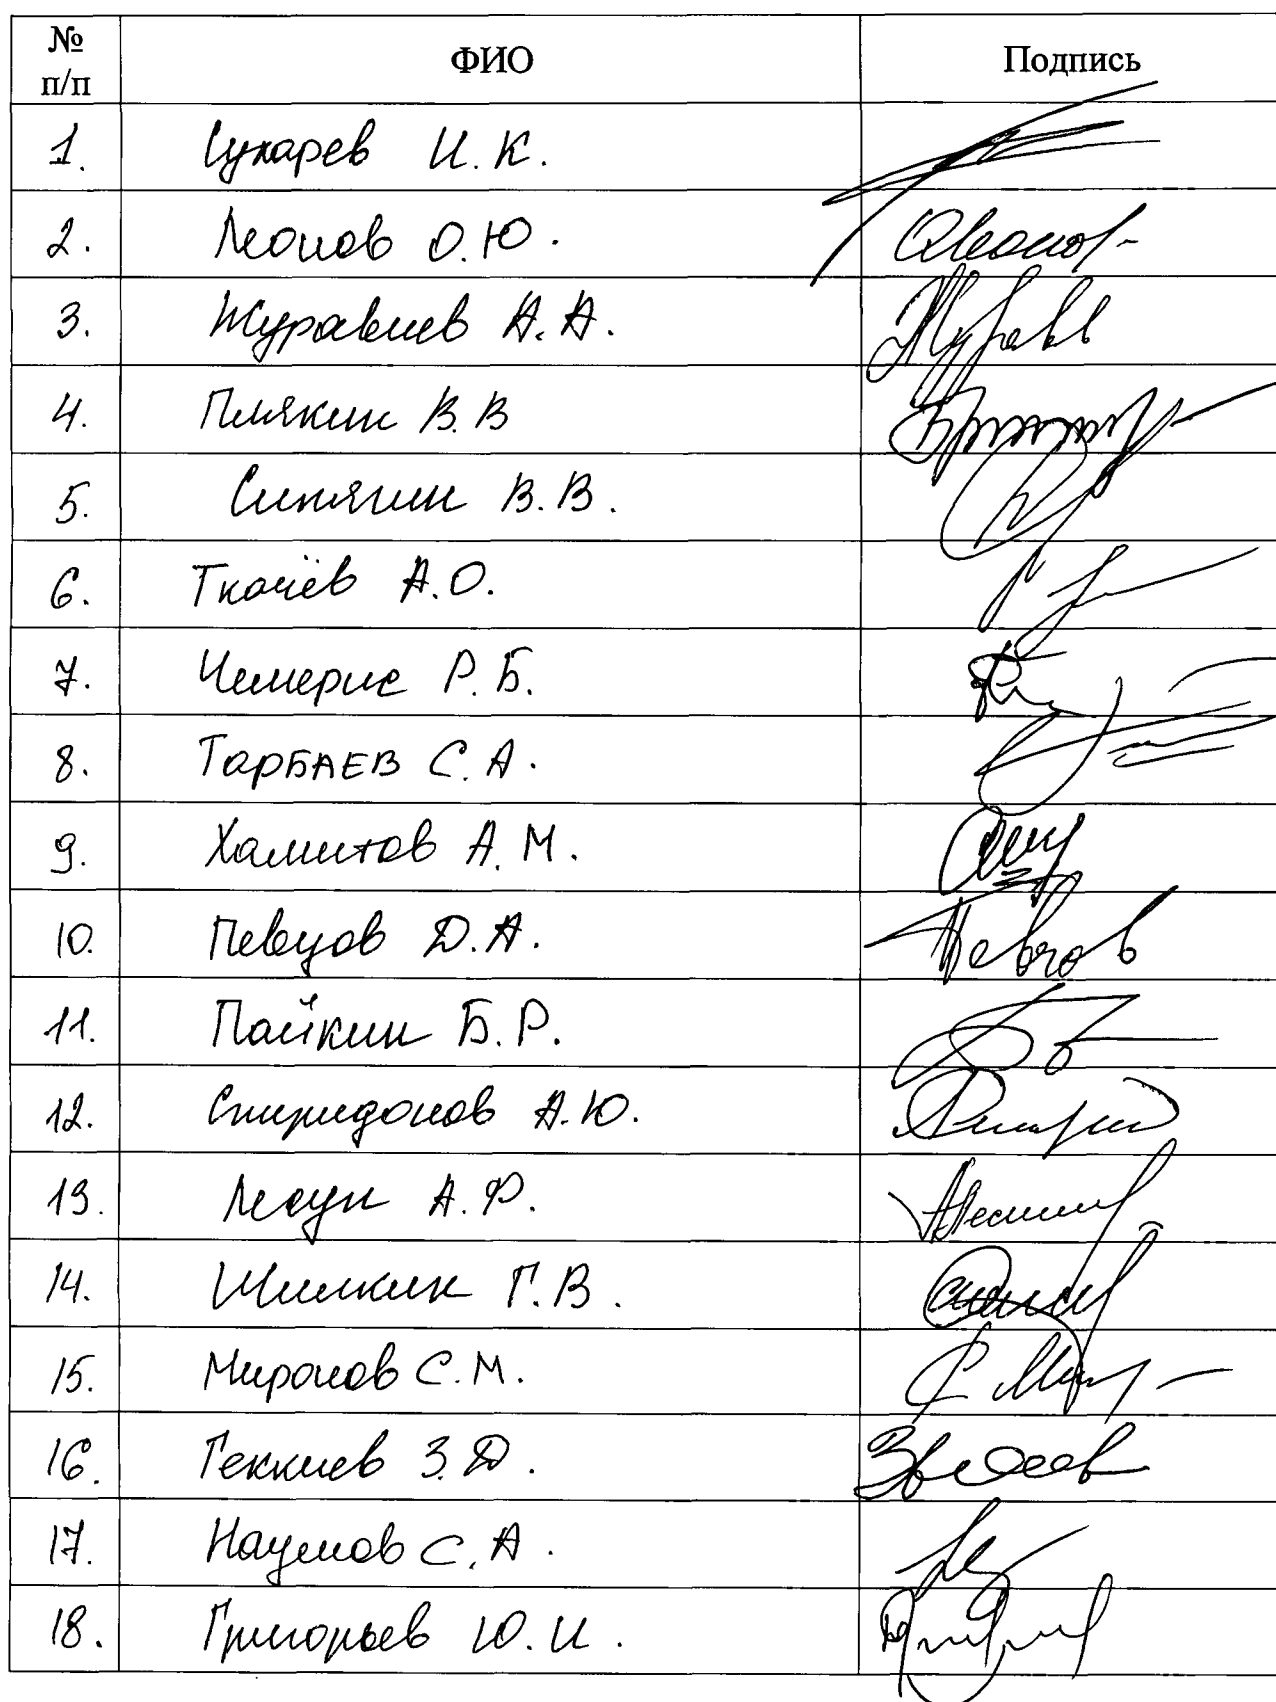 № п/п ФИО Подпись
1. Сухарев И.К.
2. Леонов О.Ю.
3. Журавлев А.А.
4. Плякин В.В
5. Синягин В.В.
6. Ткачёв А.О.
7. Чемерис Р.Б.
8. ТарБАЕВ С.А.
9. Хамитов А.М.
10. Певцов Д.А.
11. Пайкин Б.Р.
12. Спиридонов А.Ю.
13. Лесун А.Ф.
14. Шилкин Г.В.
15. Миронов С.М.
16. Геккиев З.Д.
17. Наумов С.А.
18. Григорьев Ю.И.